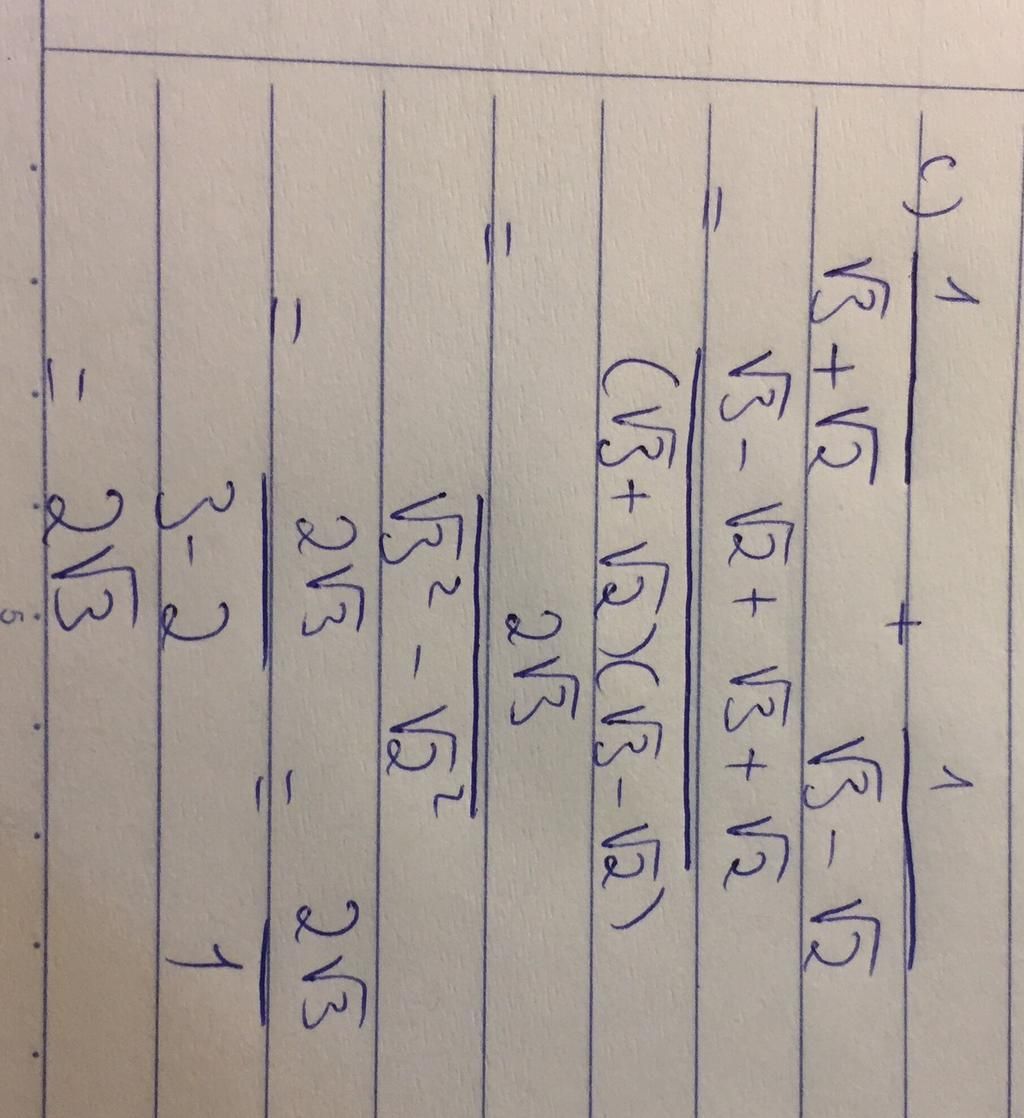 c) 1/(√3 + √2) + 1/(√3 - √2)
= (√3 - √2 + √3 + √2)/((√3 + √2)(√3 - √2))
= 2√3/(√3² - √2²)
= 2√3/(3-2) = 2√3/1
= 2√3
5